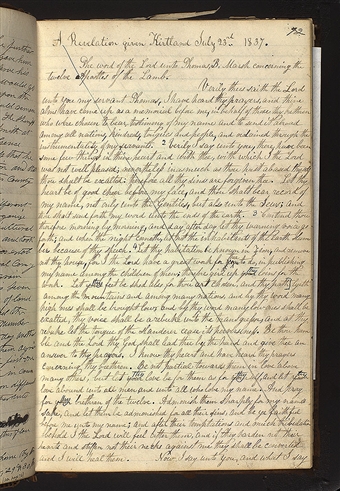 72
A Revelation given Kirtland July 23rd 1837.
The word of the Lord unto Thomas, B. Marsh concerning the
twelve Apostles of the Lamb.
Verily thus saith the Lord
unto you my servant Thomas, I have heard thy prayers, and thine
alms have come up as a memorial before me, in behalf of those thy brethren
who were chosen to bear testimony of my name, and to send it abroad
among all nations, kindreds, tongues and people, and ordained through the
instrumentality of my servants. 2 Verily I say unto you, there have been
some few things in thine heart and with thee, with which I the Lord
was not well pleased; nevertheless inasmuch as thou hast abased thyself
thou shalt be exalted; therefore all thy sins are forgiven thee. Let thy
heart be of good cheer before my face, and thou shalt bear record of
my name, not only unto the Gentiles, but also unto the Jews; and
thou shalt send forth my word unto the ends of the earth. 3 Contend thou
therefore morning by morning, and day after day let thy warning voice go
forth; and when the night cometh, let not the inhabitants of the earth slum-
ber because of thy speech. Let thy habitation be known in Zion, and remove
not thy house, for I the Lord have a great work for you to do, in publishing
my name among the children of men; therefore gird up your loins for the
work. Let your feet be shod also for thou art chosen, and thy path lyeth
among the mountains and among many nations, and by thy word many
high ones shall be brought low; and by thy word many low ones shall be
exalted, thy voice shall be a rebuke unto the transgressor, and at thy
rebuke let the tongue of the slanderer cease its perverseness. Be thou hum-
ble and the Lord thy God shall lead thee by the hand and give thee an
answer to thy prayers. I know thy heart and have heard thy prayers
concerning thy brethren. Be not partial towards them in love above
many others, but let your love be for them as for thyself, and let thy
love abound unto all men and unto all who love my name. And pray
for your brethren of the twelve. Admonish them sharply for my name's
sake, and let them be admonished for all their sins, and be ye faithful
before me unto my name; and after their temptations and much tribulation
behold I the Lord will feel after them, and if they harden not their
hearts and stiffen not their necks against me they shall be converted
and I will heal them. Now, I say unto you, and what I say